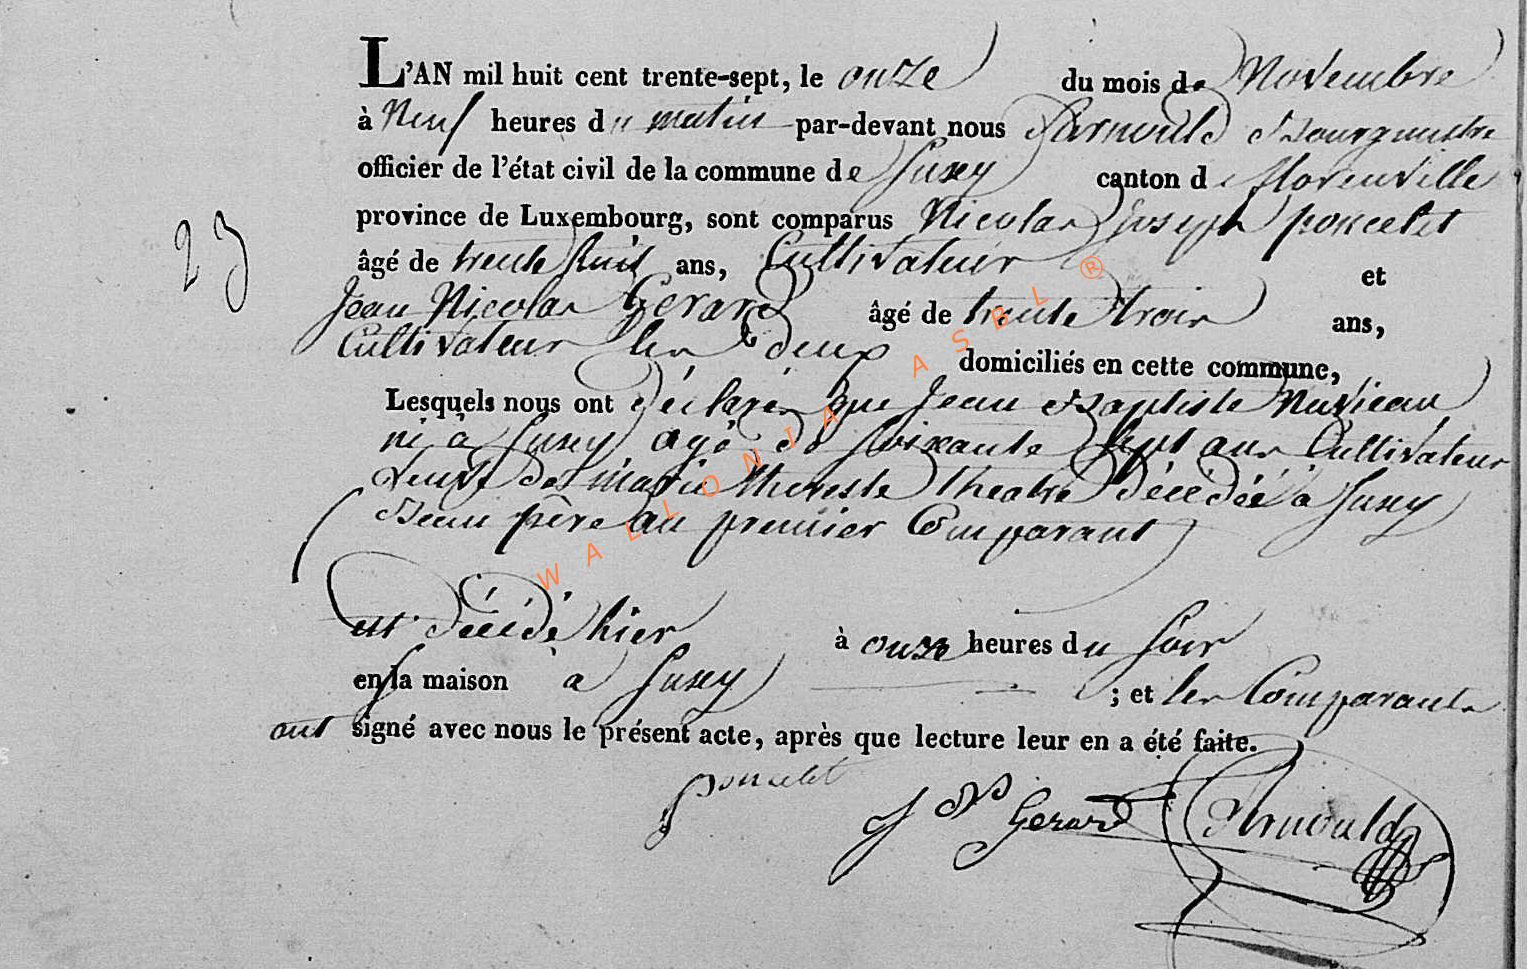 L'AN mil huit cent trente-sept, le onze du mois de Novembre
à Neuf heures du matin par-devant nous Arnould Bourgmestre
officier de l'état civil de la commune de Suxy canton de florenville
province de Luxembourg, sont comparus Nicolas Joseph poncelet
âgé de trente huit ans, Cultivateur et
Jean Nicolas Gerard âgé de trente trois ans,
Cultivateur les deux domiciliés en cette commune,
Lesquels nous ont déclarés que Jean Baptiste
né à Suxy agé de soixante sept ans Cultivateur
veuf de marie theresse décédée à Suxy
Beau père au premier Comparant
est décédé hier à onze heures du soir
en sa maison à Suxy ; et les Comparants
ont signé avec nous le présent acte, après que lecture leur en a été faite.
poncelet
J N Gerard Arnould
23
WALLONIA ASBL ®